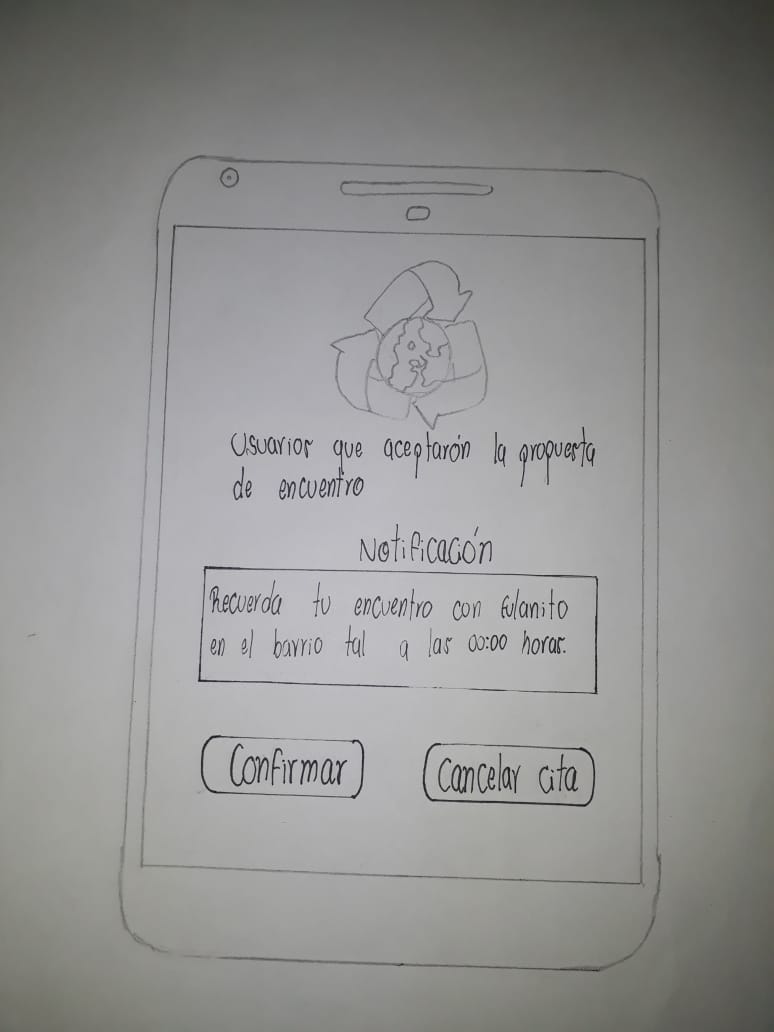 Usuarios que aceptarón la propuesta
de encuentro
Notificación
Recuerda tu encuentro con fulanito
en el barrio tal a las 00:00 horas.
Confirmar
Cancelar cita